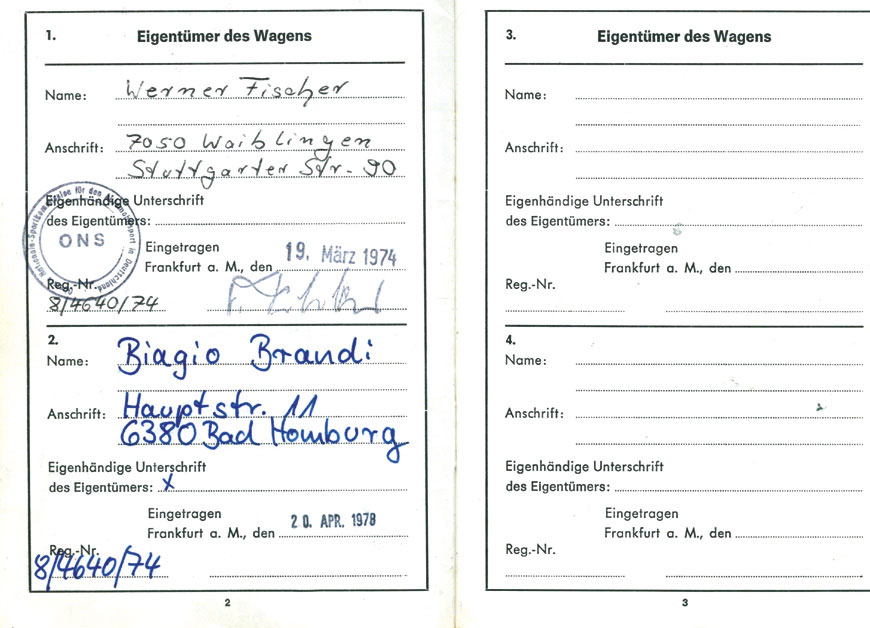 1. Eigentümer des Wagens
Name: Werner Fischer
Anschrift: 7050 Waiblingen
Stuttgarter Str. 90
Eigenhändige Unterschrift
des Eigentümers:
ONS
Eingetragen
Frankfurt a. M., den 19. März 1974
Reg.-Nr.
8/4640/74
2.
Name: Biagio Brandi
Anschrift: Hauptstr. 11
6380 Bad Homburg
Eigenhändige Unterschrift
des Eigentümers: x
Eingetragen
Frankfurt a. M., den 20. APR. 1978
Reg.-Nr.
8/4640/74
2
3. Eigentümer des Wagens
Name:
Anschrift:
Eigenhändige Unterschrift
des Eigentümers:
Eingetragen
Frankfurt a. M., den
Reg.-Nr.
4.
Name:
Anschrift:
Eigenhändige Unterschrift
des Eigentümers:
Eingetragen
Frankfurt a. M., den
Reg.-Nr.
3